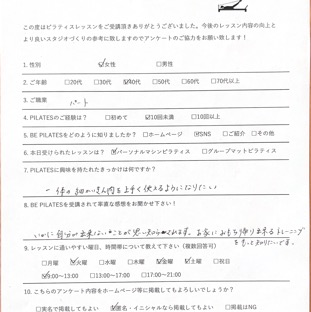 この度はピラティスレッスンをご受講頂きありがとうございました。今後のレッスン内容の向上と
より良いスタジオづくりの参考に致しますのでアンケートのご協力をお願い致します！
1. 性別 ☑女性 □男性
2. ご年齢 □20代 □30代 ☑40代 □50代 □60代 □70代以上
3. ご職業 パート
4. PILATESのご経験は？ □初めて ☑10回未満 □10回以上
5. BE PILATESをどのように知りましたか？ □ホームページ ☑SNS □ご紹介 □その他
6. 本日受けられたレッスンは？ ☑パーソナルマシンピラティス □グループマットピラティス
7. PILATESに興味を持たれたきっかけは何ですか？
体の細かい筋肉を上手く使えるようになりたい
8. BE PILATESを受講されて率直な感想をお聞かせ下さい！
いかに自分が出来ないことが思い知らされます。お家にお持ち帰り出来るトレーニング
をもっと知りたいです。
9. レッスンに通いやすい曜日、時間帯について教えて下さい（複数回答可）
□月曜 ☑火曜 □水曜 □木曜 ☑金曜 ☑土曜 □祝日
☑9:00〜13:00 □13:00〜17:00 □17:00〜21:00
10. こちらのアンケート内容をホームページ等に掲載してもよろしいでしょうか？
□実名で掲載してもよい ☑匿名・イニシャルなら掲載してもよい □掲載はNG